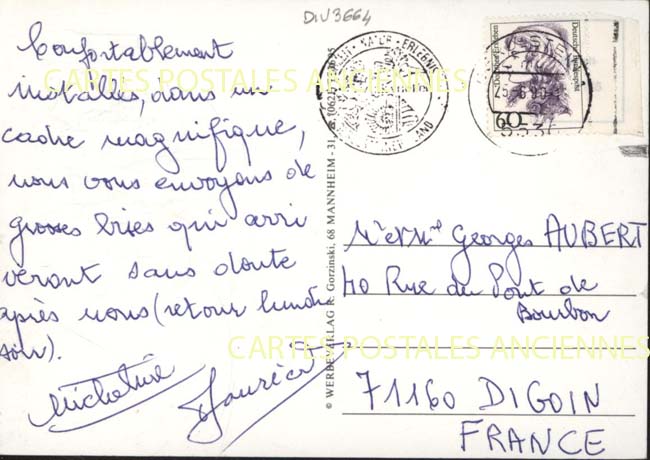 DIV3664
Confortablement
installés, dans un
cadre magnifique,
nous vous envoyons de
grosses bises qui arri
veront sans doute
après nous (retour lundi
soir).
Micheline
Maurice
© WERBEVERLAG R. Gorzinski, 68 MANNHEIM - 31
Deutsche Bundespost
60
Mr et Mme Georges AUBERT
40 Rue du Pont de
Bourbon
71160 DIGOIN
FRANCE
CARTES POSTALES ANCIENNES
CARTES POSTALES ANCIENNES